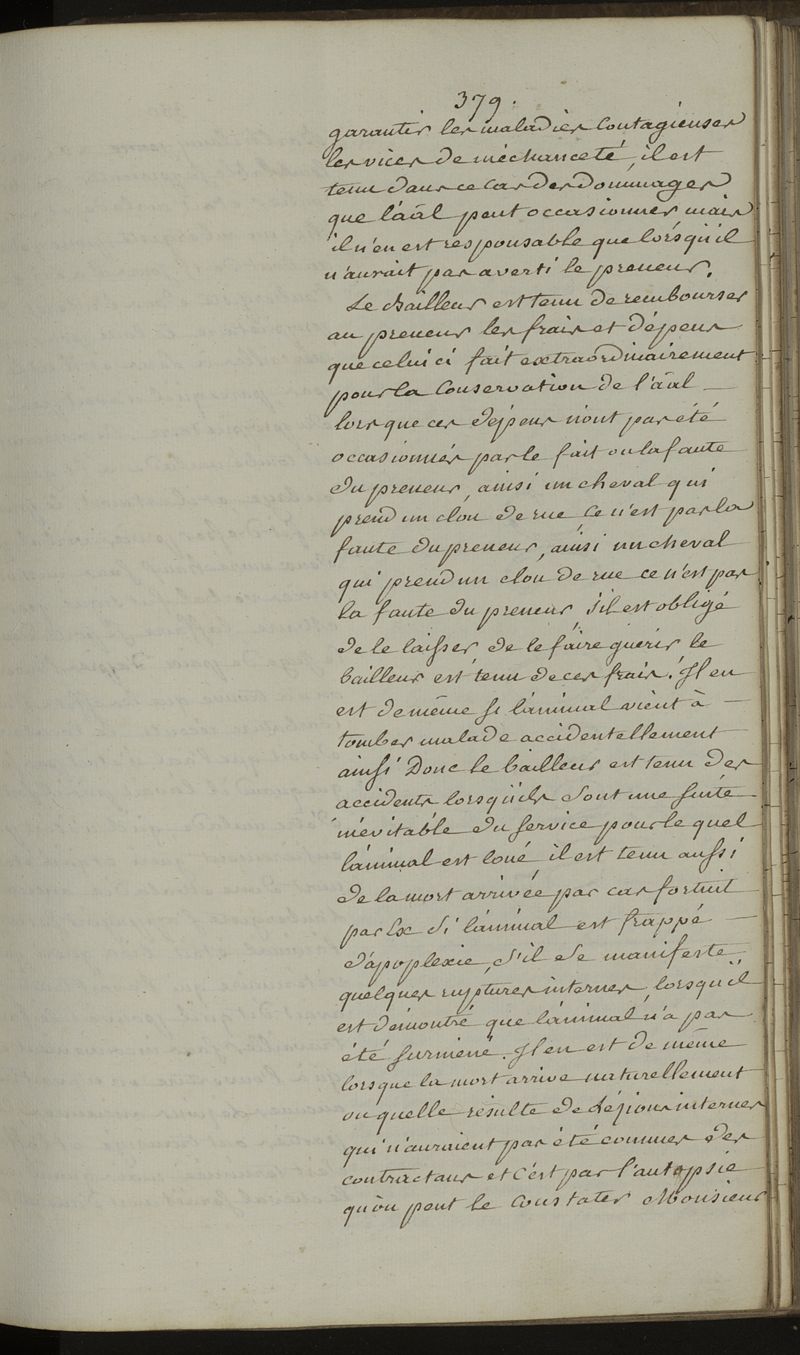 379.
garantir les maladies contagieuses
les vices de méchanceté, il est
tenu dans ce cas des dommages
que l'aâl peut occasionner mais
il n'en est responsable que lorsqu'il
n'aurait pas averti le preneur.
Le bailleur est tenu de rembourser
au preneur les frais et dépens
que celui ci fait extraordinairement
pour la Conservation de l'aâl —
lors que ces dépens n'ont pas été
occasionnés par le fait ou la faute
du preneur, ainsi un cheval qui
prend un clou de rue ce n'est pas la
faute du preneur, ainsi un cheval
qui prend un clou de rue ce n'est pas
la faute du preneur, s'il est obligé
de le laisser de le faire guérir, le
bailleur est tenu de ces frais. Il en
est de même si l'animal vient à —
tomber malade accidentellement
ainsi Donc le bailleur est tenu des
accidents lorsqu'ils sont une suite
inévitable du service pour le quel
l'animal est loué il est tenu aussi
de la mort arrivée par cas fortuit
par Ex si l'animal est frappé —
d'apoplexie, s'il se manifeste
quelques ruptures internes, lorsqu'il
est démontré que l'animal n'a pas
été surmené. Il en est de même
lorsque la mort arrive naturellement
ou quelle résulte de lésions internes
qui n'auraient pas été connues des
contractans et c'est par l'autopsie
qu'on peut le Constater Monsieur